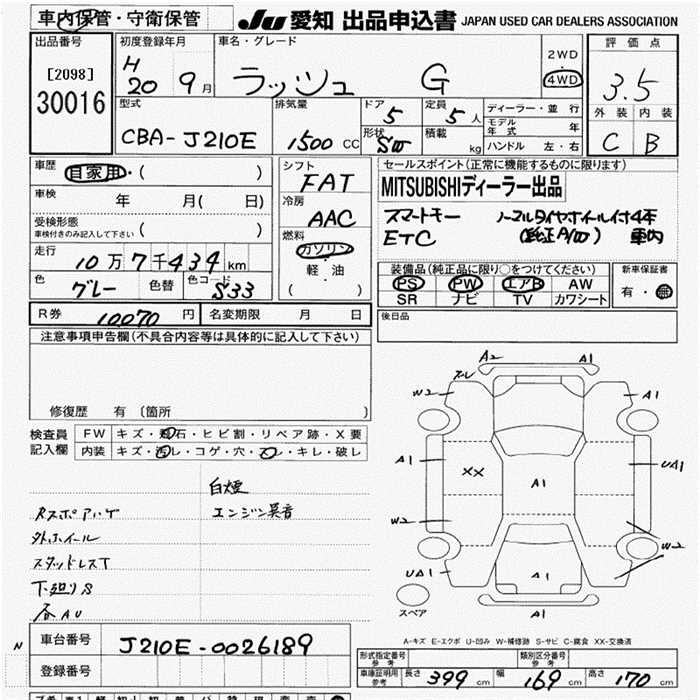 車内保管・守衛保管 JU 愛知 出品申込書 JAPAN USED CAR DEALERS ASSOCIATION
出品番号 [2098] 30016
初度登録年月 H 20 9月
車名・グレード ラッシュ G
2WD 4WD
評価点 3.5
型式 CBA-J210E
排気量 1500 CC
ドア 5 形状 SW
定員 5人 積載 kg
ディーラー・並行
モデル年式 年
ハンドル 左・右
外装 内装
C B
車歴 自家用・( )
車検 年 月( 日)
受検形態 車検付きのみ記入して下さい ( )
走行 10万7千434km
色 グレー 色替 色コード S33
シフト FAT
冷房 AAC
燃料 ガソリン・軽・油 ( )
セールスポイント(正常に機能するものに限ります)
MITSUBISHIディーラー出品
スマートキー ノーマルタイヤホイール付4本
ETC (純正A/W) 車内
装備品(純正品に限り○をつけてください)
PS PW エアB AW
SR ナビ TV カワシート
新車保証書 有・無
R券 10,070円 名変期限 月 日
後日品
注意事項申告欄(不具合内容等は具体的に記入して下さい)
修復歴 有 〔箇所 〕
検査員記入欄
FW キズ・飛石・ヒビ割・リペア跡・X要
内装 キズ・汚レ・コゲ・穴・スレ・キレ・破レ
白煙
Rスポアハゲ エンジン異音
外ホイール
スタッドレスT
下廻りS
各AU
A2 A1
ズレ
W2 A1
A1 XX A1 UA1
W2 W2
UA1 A1
A1
スペア
A-キズ E-エクボ U-凹み W-補修跡 S-サビ C-腐食 XX-交換済
N 車台番号 J210E-0026189
登録番号
形式指定番号 参考 類別区分番号 参考
車庫証明用 参考 長さ 399cm 幅 169cm 高さ 170cm